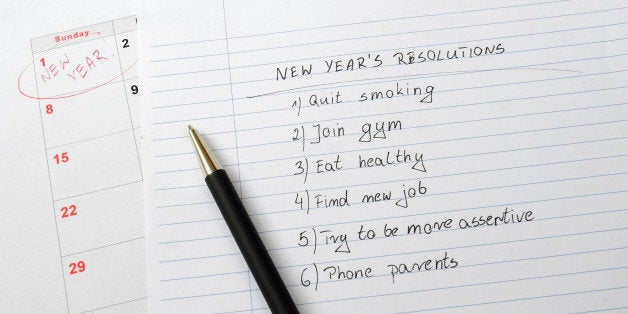 Sunday
1
2
NEW
YEAR.
8
9
15
22
29
NEW YEAR'S RESOLUTIONS
1) Quit smoking
2) Join gym
3) Eat healthy
4) Find new job
5) Try to be more assertive
6) Phone parents